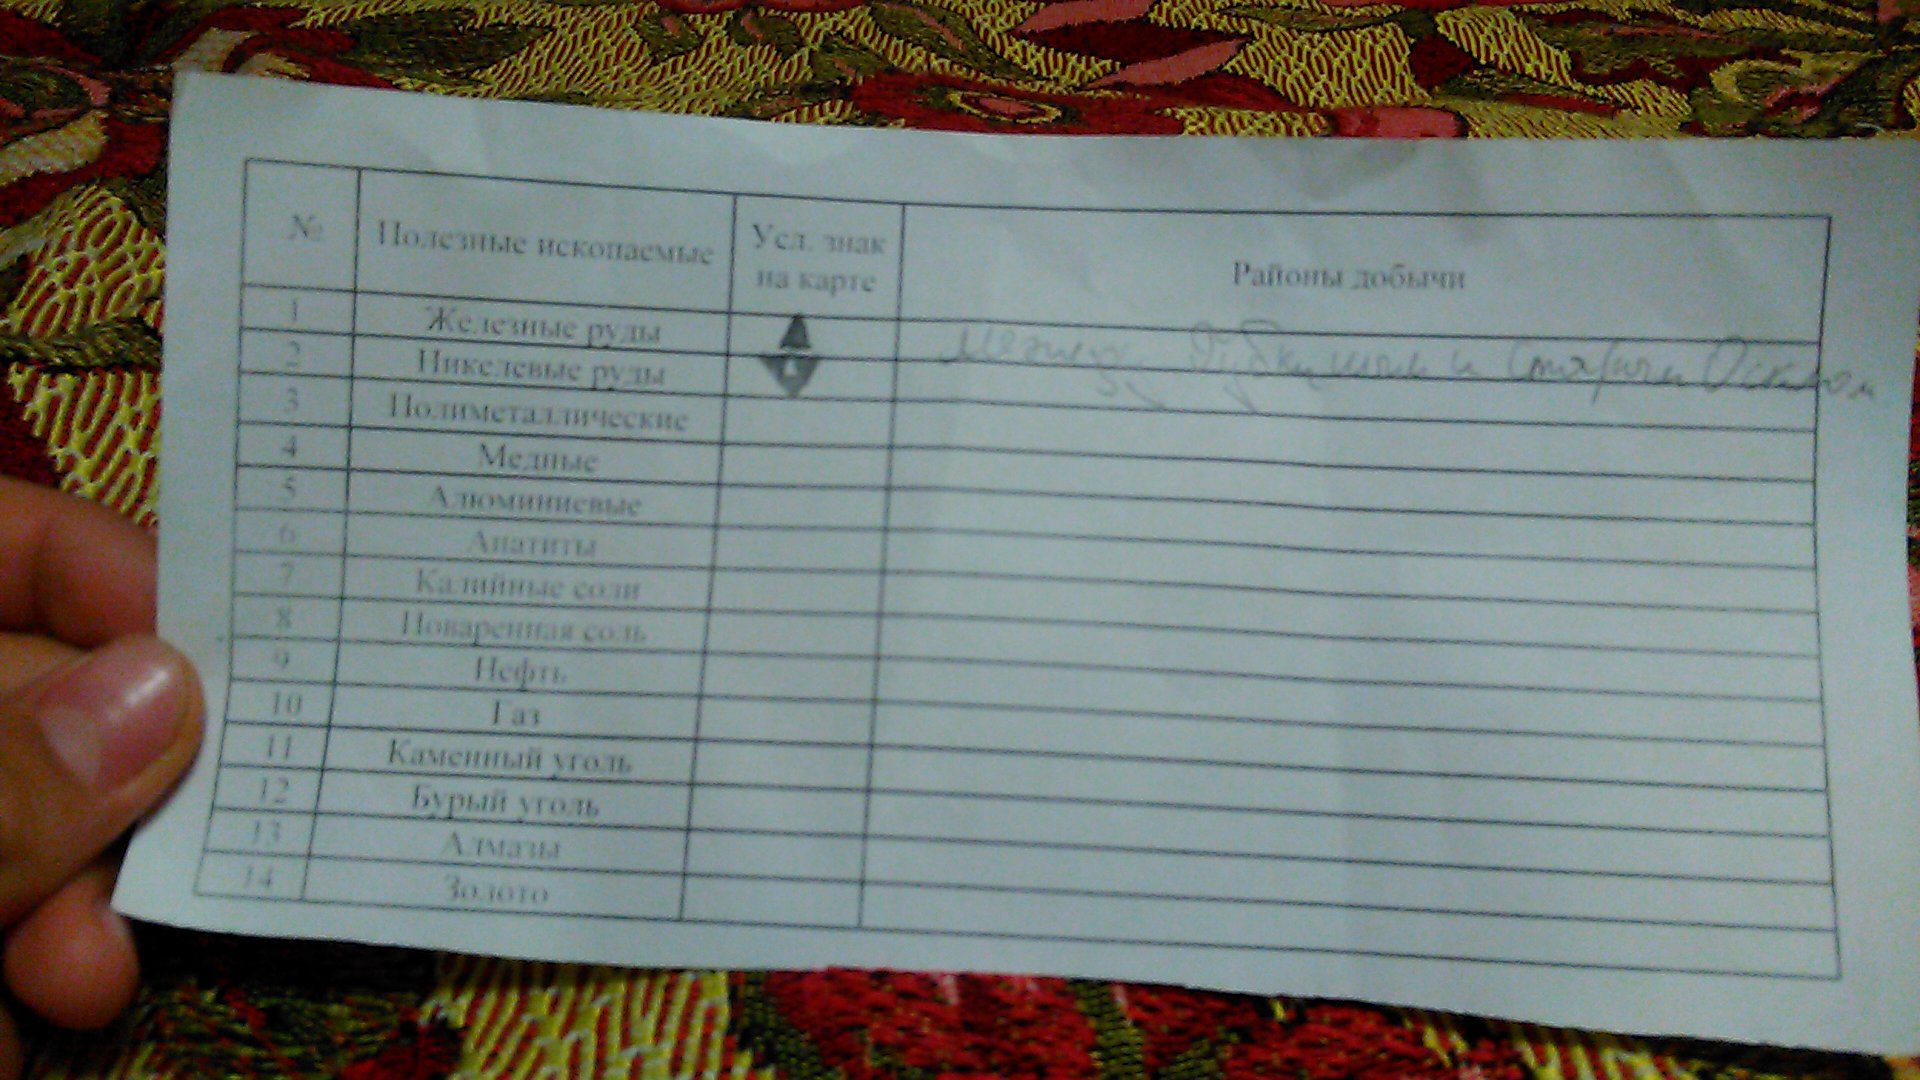 № Полезные ископаемые Усл. знак на карте Районы добычи
1 Железные руды между Губкиным и Старым Осколом
2 Никелевые руды
3 Полиметаллические
4 Медные
5 Алюминиевые
6 Апатиты
7 Калийные соли
8 Поваренная соль
9 Нефть
10 Газ
11 Каменный уголь
12 Бурый уголь
13 Алмазы
14 Золото